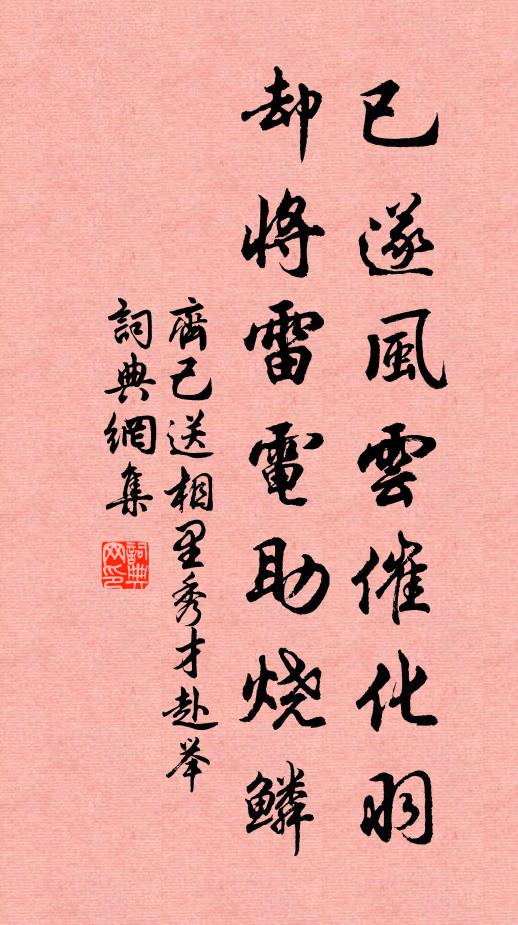 已遂風雲催化羽
却將雷電助烧鱗
齊己送相里秀才赴举
詞典網集
詞典网印